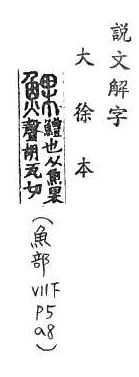 説文解字
大徐本
鱧也从魚果
聲胡瓦切
（魚部 VII下 P5 a8）